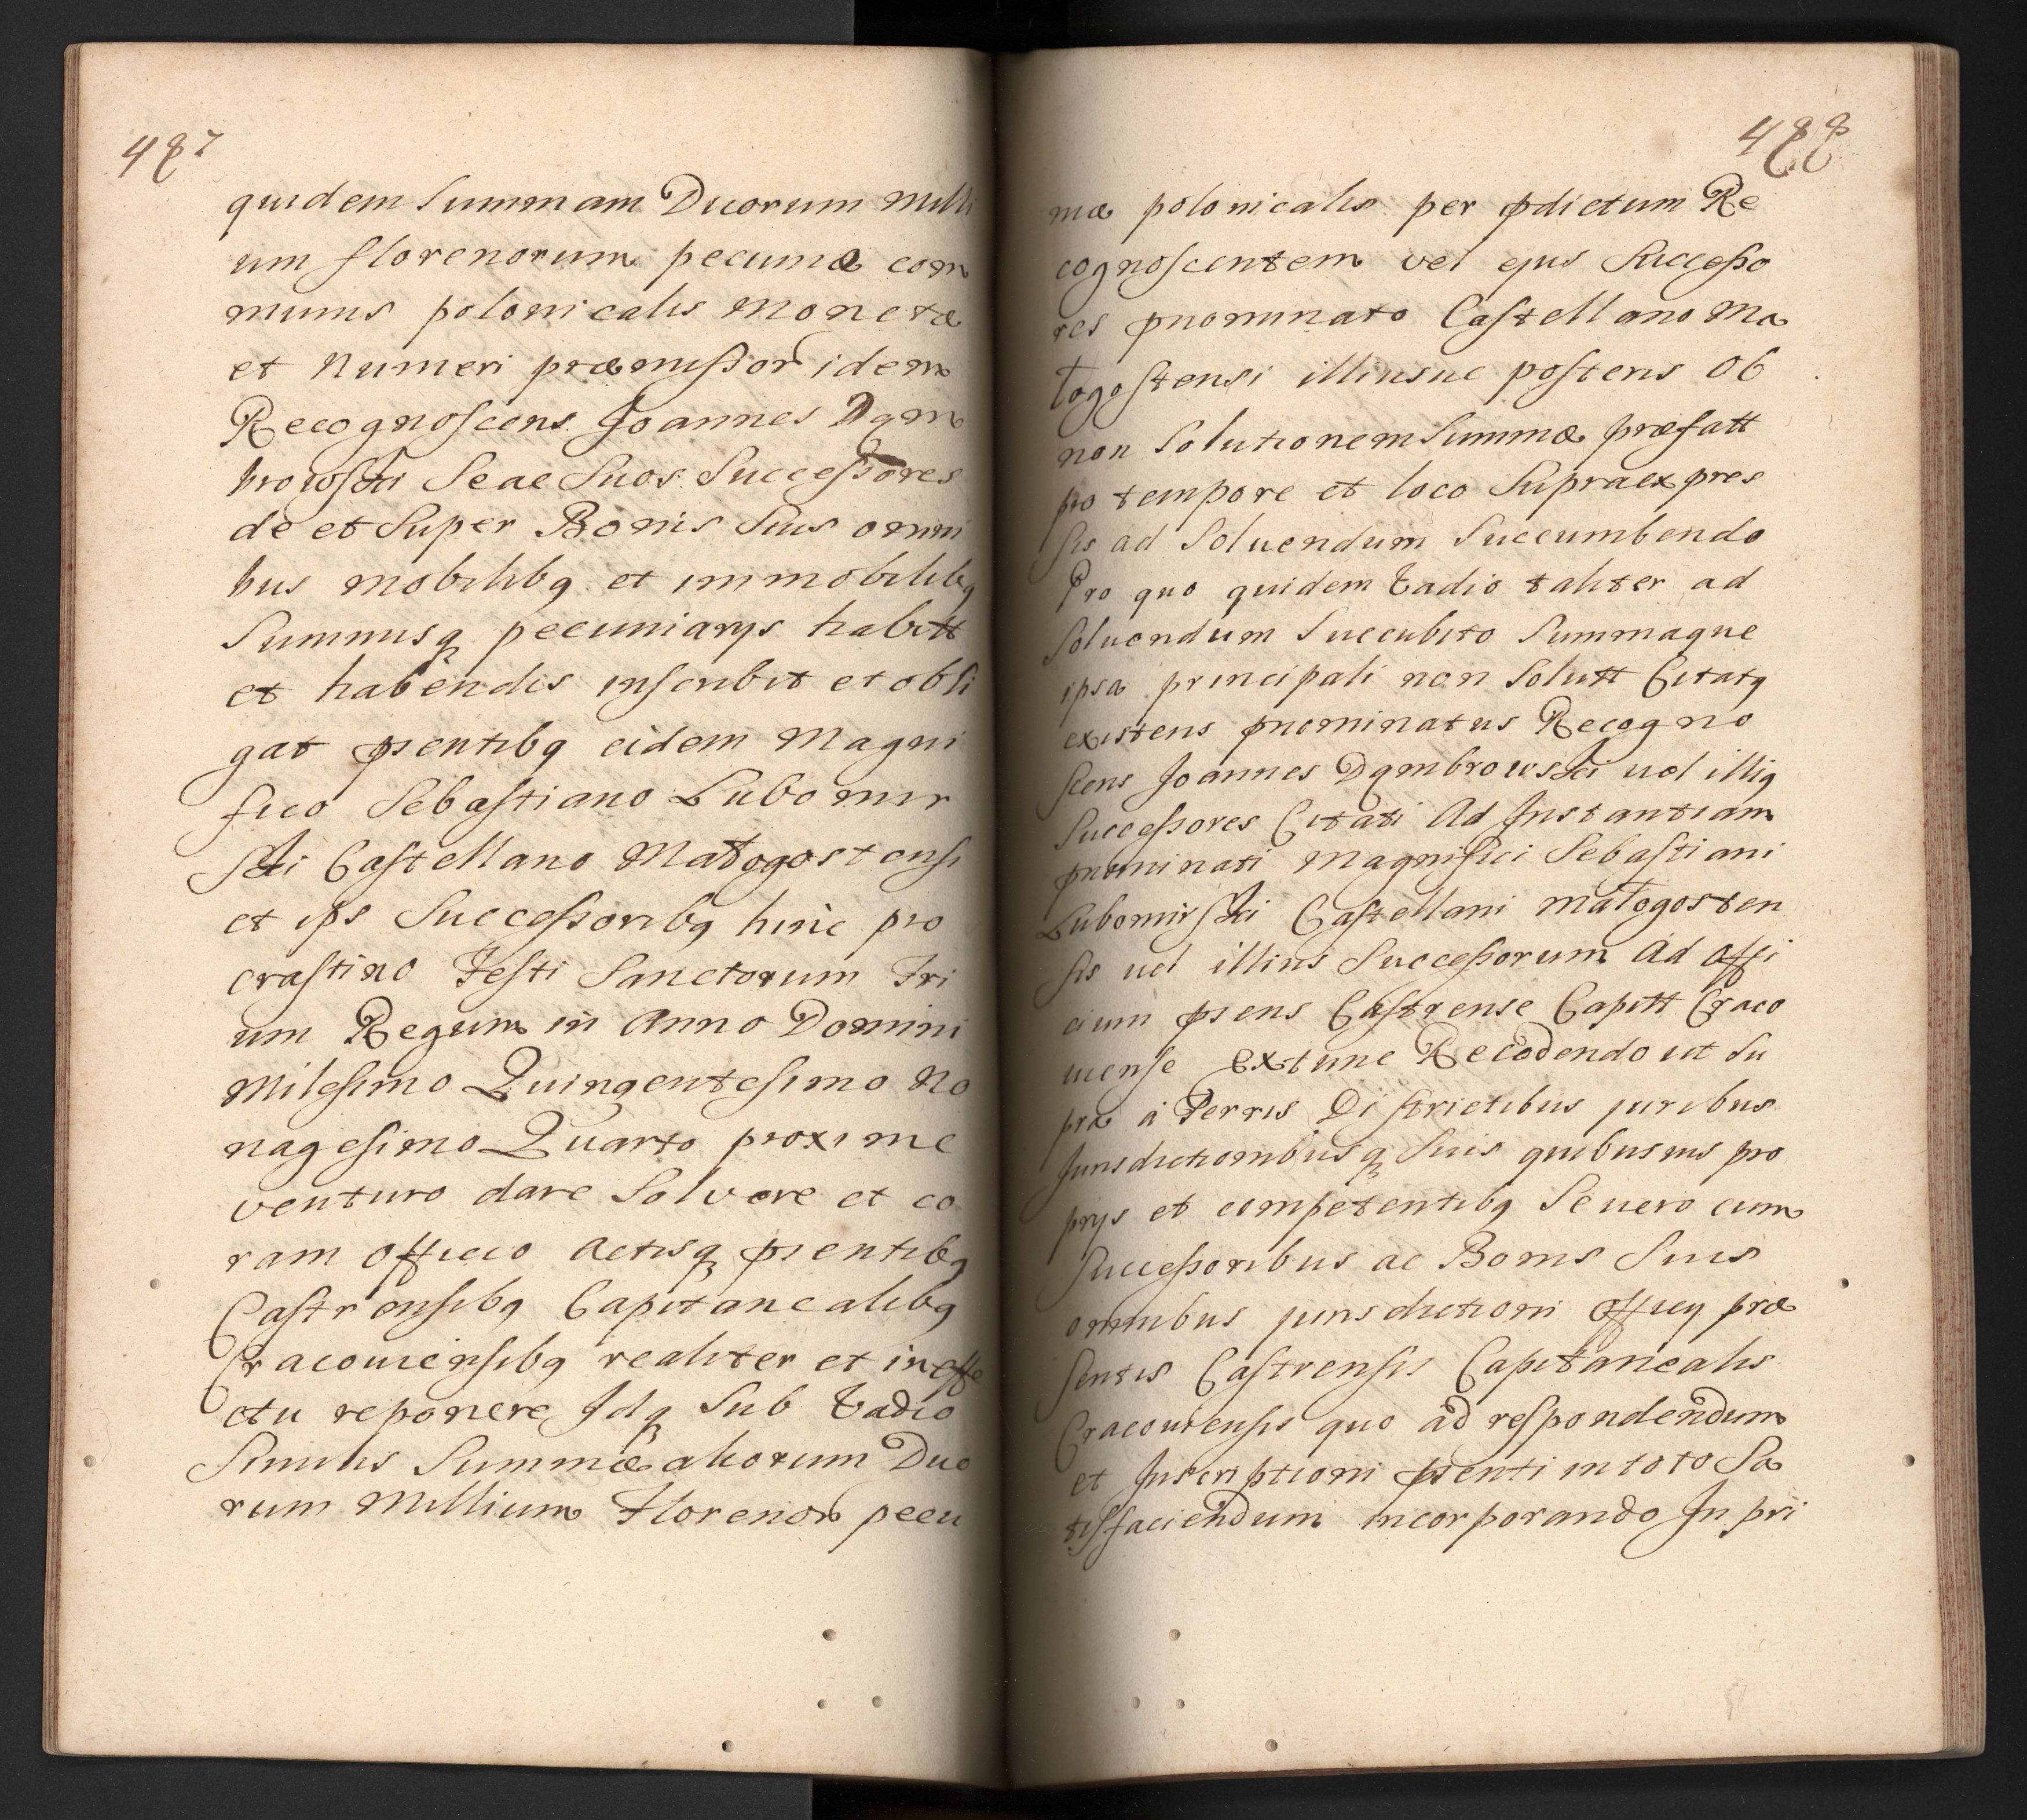 487
quidem Summam Duorum Milli
um florenorum pecuniæ com
munis polonicalis Monetæ
et Numeri præmissor idem
Recognoscens Joannes Dąm
browski Se ac Suos Successores
de et Super Bonis Suis omni
bus mobilibq et immobilibq
Summisq pecuniarys habitt
et habendis inscribit et obli
gat pñsentibq eidem Magni
fico Sebastiano Lubomir
ski Castellano Małogostensi
et ips Successoribq hinc pro
crastino Festi Sanctorum Tri
um Regum in Anno Domini
Milesimo Quingentesimo No
nagesimo Quarto proxime
venturo dare Solvere et co
ram officio Actisq pñsentibq
Castrensibq Capitanealibq
Cracouiensibq realiter et in effe
ctu reponere Idq Sub Vadio
Similis Summæ aliorum Duo
rum Millium Florenor pecu
488
niæ polonicalis per pdictum Re
cognoscentem vel ejus Successo
res pnominato Castellano Ma
łogostensi illiusue posteris Ob
non Solutionem Summæ præfatt
pro tempore et loco Supraexpres
sis ad Soluendum Succumbendo
Pro quo quidem Vadio taliter ad
Soluendum Succubito Summaque
ipsa principali non Solutt Citatq
existens pnominatus Recogno
scens Joannes Dąmbrowski uel illiq
Successores Citati Ad Instantiam
pnominati Magnifici Sebastiani
Lubomirski Castellani małogosten
sis uel illius Successorum Ad offi
cium psens Castrense Capitt Craco
uiense Extunc Recedendo ut Su
pra á Terris Districtibus juribus
Jurisdictionibusq Suis quibusuis pro
prys et competentibq Se uero cum
Successoribus ac Bonis Suis
omnibus jurisdictioni officy præ
sentis Castrensis Capitanealis
Cracouiensis quo ad respondendum
et Inscriptioni psenti in toto Sa
tisfaciendum incorporando In pri